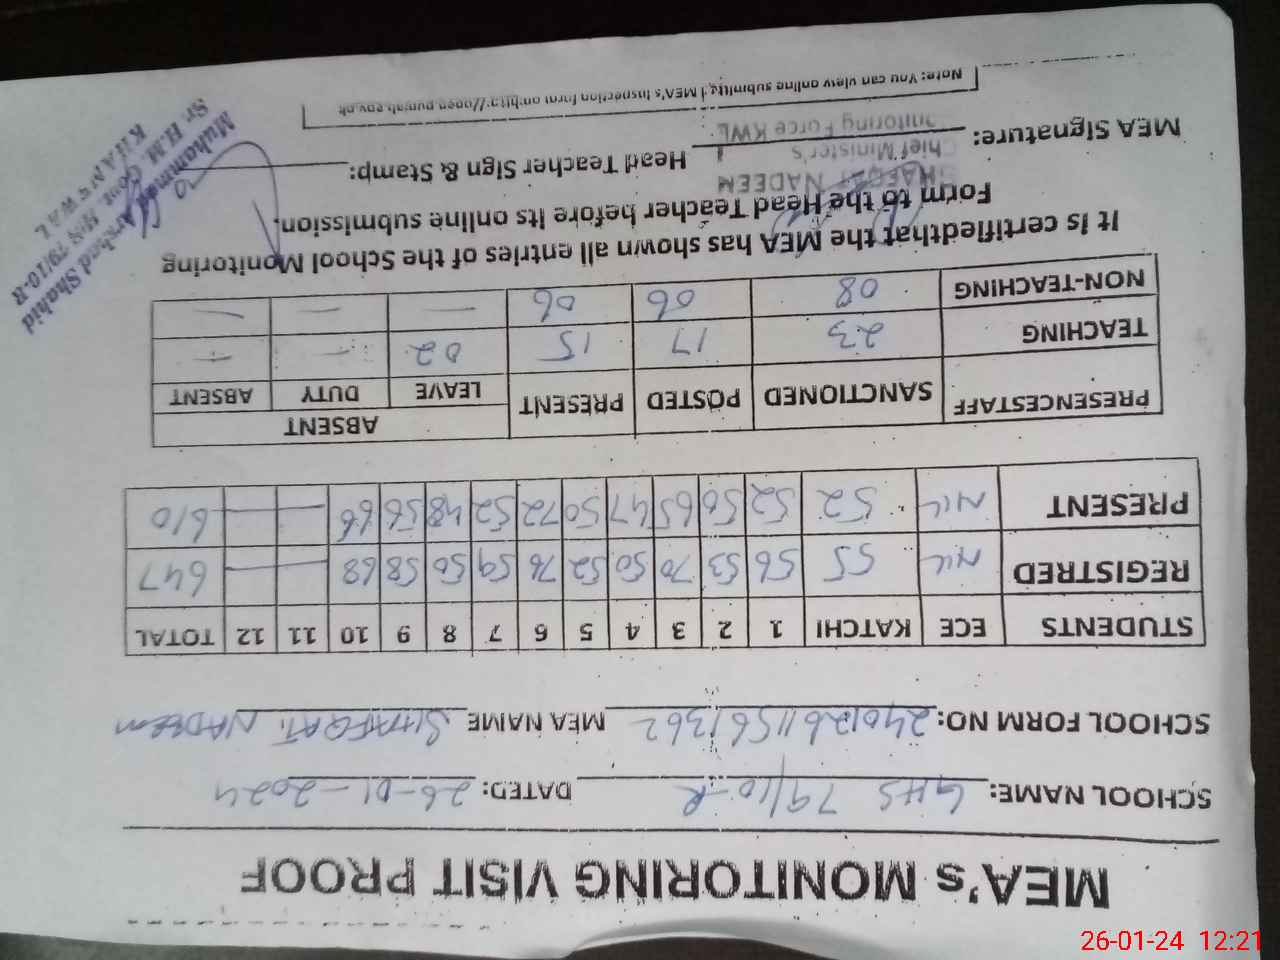 MEA's MONITORING VISIT PROOF
SCHOOL NAME: GHS 79/10-R DATED: 26-01-2024
SCHOOL FORM NO: 24012611561362 MEA NAME SHAFQAT NADEEM
STUDENTS ECE KATCHI 1 2 3 4 5 6 7 8 9 10 11 12 TOTAL
REGISTRED NIL 55 56 53 70 50 52 76 59 50 58 68 — — 647
PRESENT NIL 52 52 50 65 47 50 72 52 48 56 66 — — 610
PRESENCESTAFF SANCTIONED POSTED PRESENT ABSENT
LEAVE DUTY ABSENT
TEACHING 23 17 15 02 — —
NON-TEACHING 08 06 06 — — —
It is certifiedthat the MEA has shown all entries of the School Monitoring
Form to the Head Teacher before its online submission.
SHAFQAT NADEEM
Chief Minister's
MEA Signature: Head Teacher Sign & Stamp:
Monitoring Force KWL
Muhammad Arshad Shahid
Sr. H.M Govt. H/S 79/10-R
KHANEWAL
Note: You can view online submitted MEA's inspection form on http://open.punjab.gov.pk
26-01-24 12:21